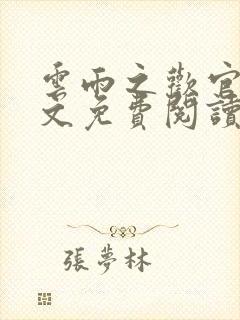 雲雨之歡官
文免費閱讀
張夢林